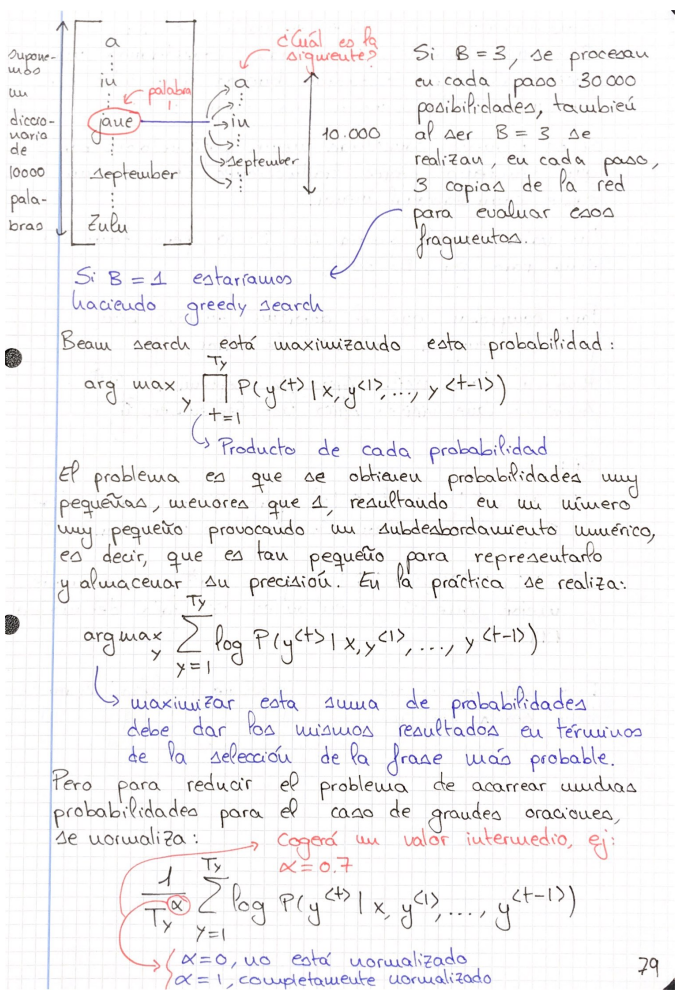 supone-
mos
un
diccio-
nario
de
10000
pala-
bras
a
⋮
in
⋮
jane
⋮
september
⋮
Zulu
palabra
1
¿Cuál es la
siguiente?
a
⋮
in
⋮
september
⋮
10.000
Si B = 3, se procesan
en cada paso 30000
posibilidades, también
al ser B = 3 se
realizan, en cada paso,
3 copias de la red
para evaluar esos
fragmentos.
Si B = 1 estaríamos
haciendo greedy search
Beam search está maximizando esta probabilidad:
arg max_y ∏_{t=1}^{Ty} P(y^<t> | x, y^<1>, ..., y^<t-1>)
Producto de cada probabilidad
El problema es que se obtienen probabilidades muy
pequeñas, menores que 1, resultando en un número
muy pequeño provocando un subdesbordamiento numérico,
es decir, que es tan pequeño para representarlo
y almacenar su precisión. En la práctica se realiza:
arg max_y ∑_{y=1}^{Ty} log P(y^<t> | x, y^<1>, ..., y^<t-1>)
maximizar esta suma de probabilidades
debe dar los mismos resultados en términos
de la selección de la frase más probable.
Pero para reducir el problema de acarrear muchas
probabilidades para el caso de grandes oraciones,
se normaliza:
Cogerá un valor intermedio, ej:
α = 0.7
1/Ty^α ∑_{y=1}^{Ty} log P(y^<t> | x, y^<1>, ..., y^<t-1>)
α = 0, no está normalizado
α = 1, completamente normalizado
79